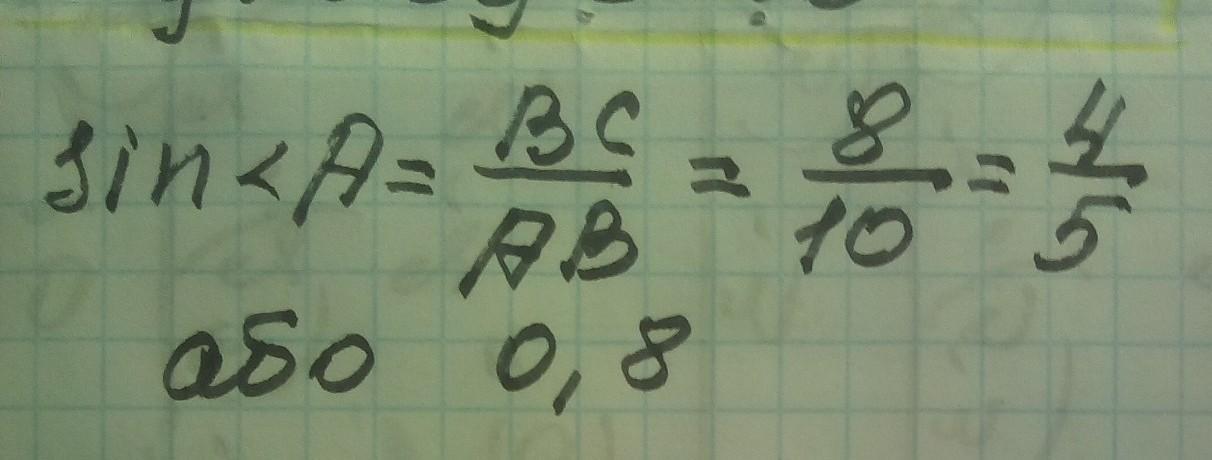 sin<A = BC/AB = 8/10 = 4/5
або 0,8